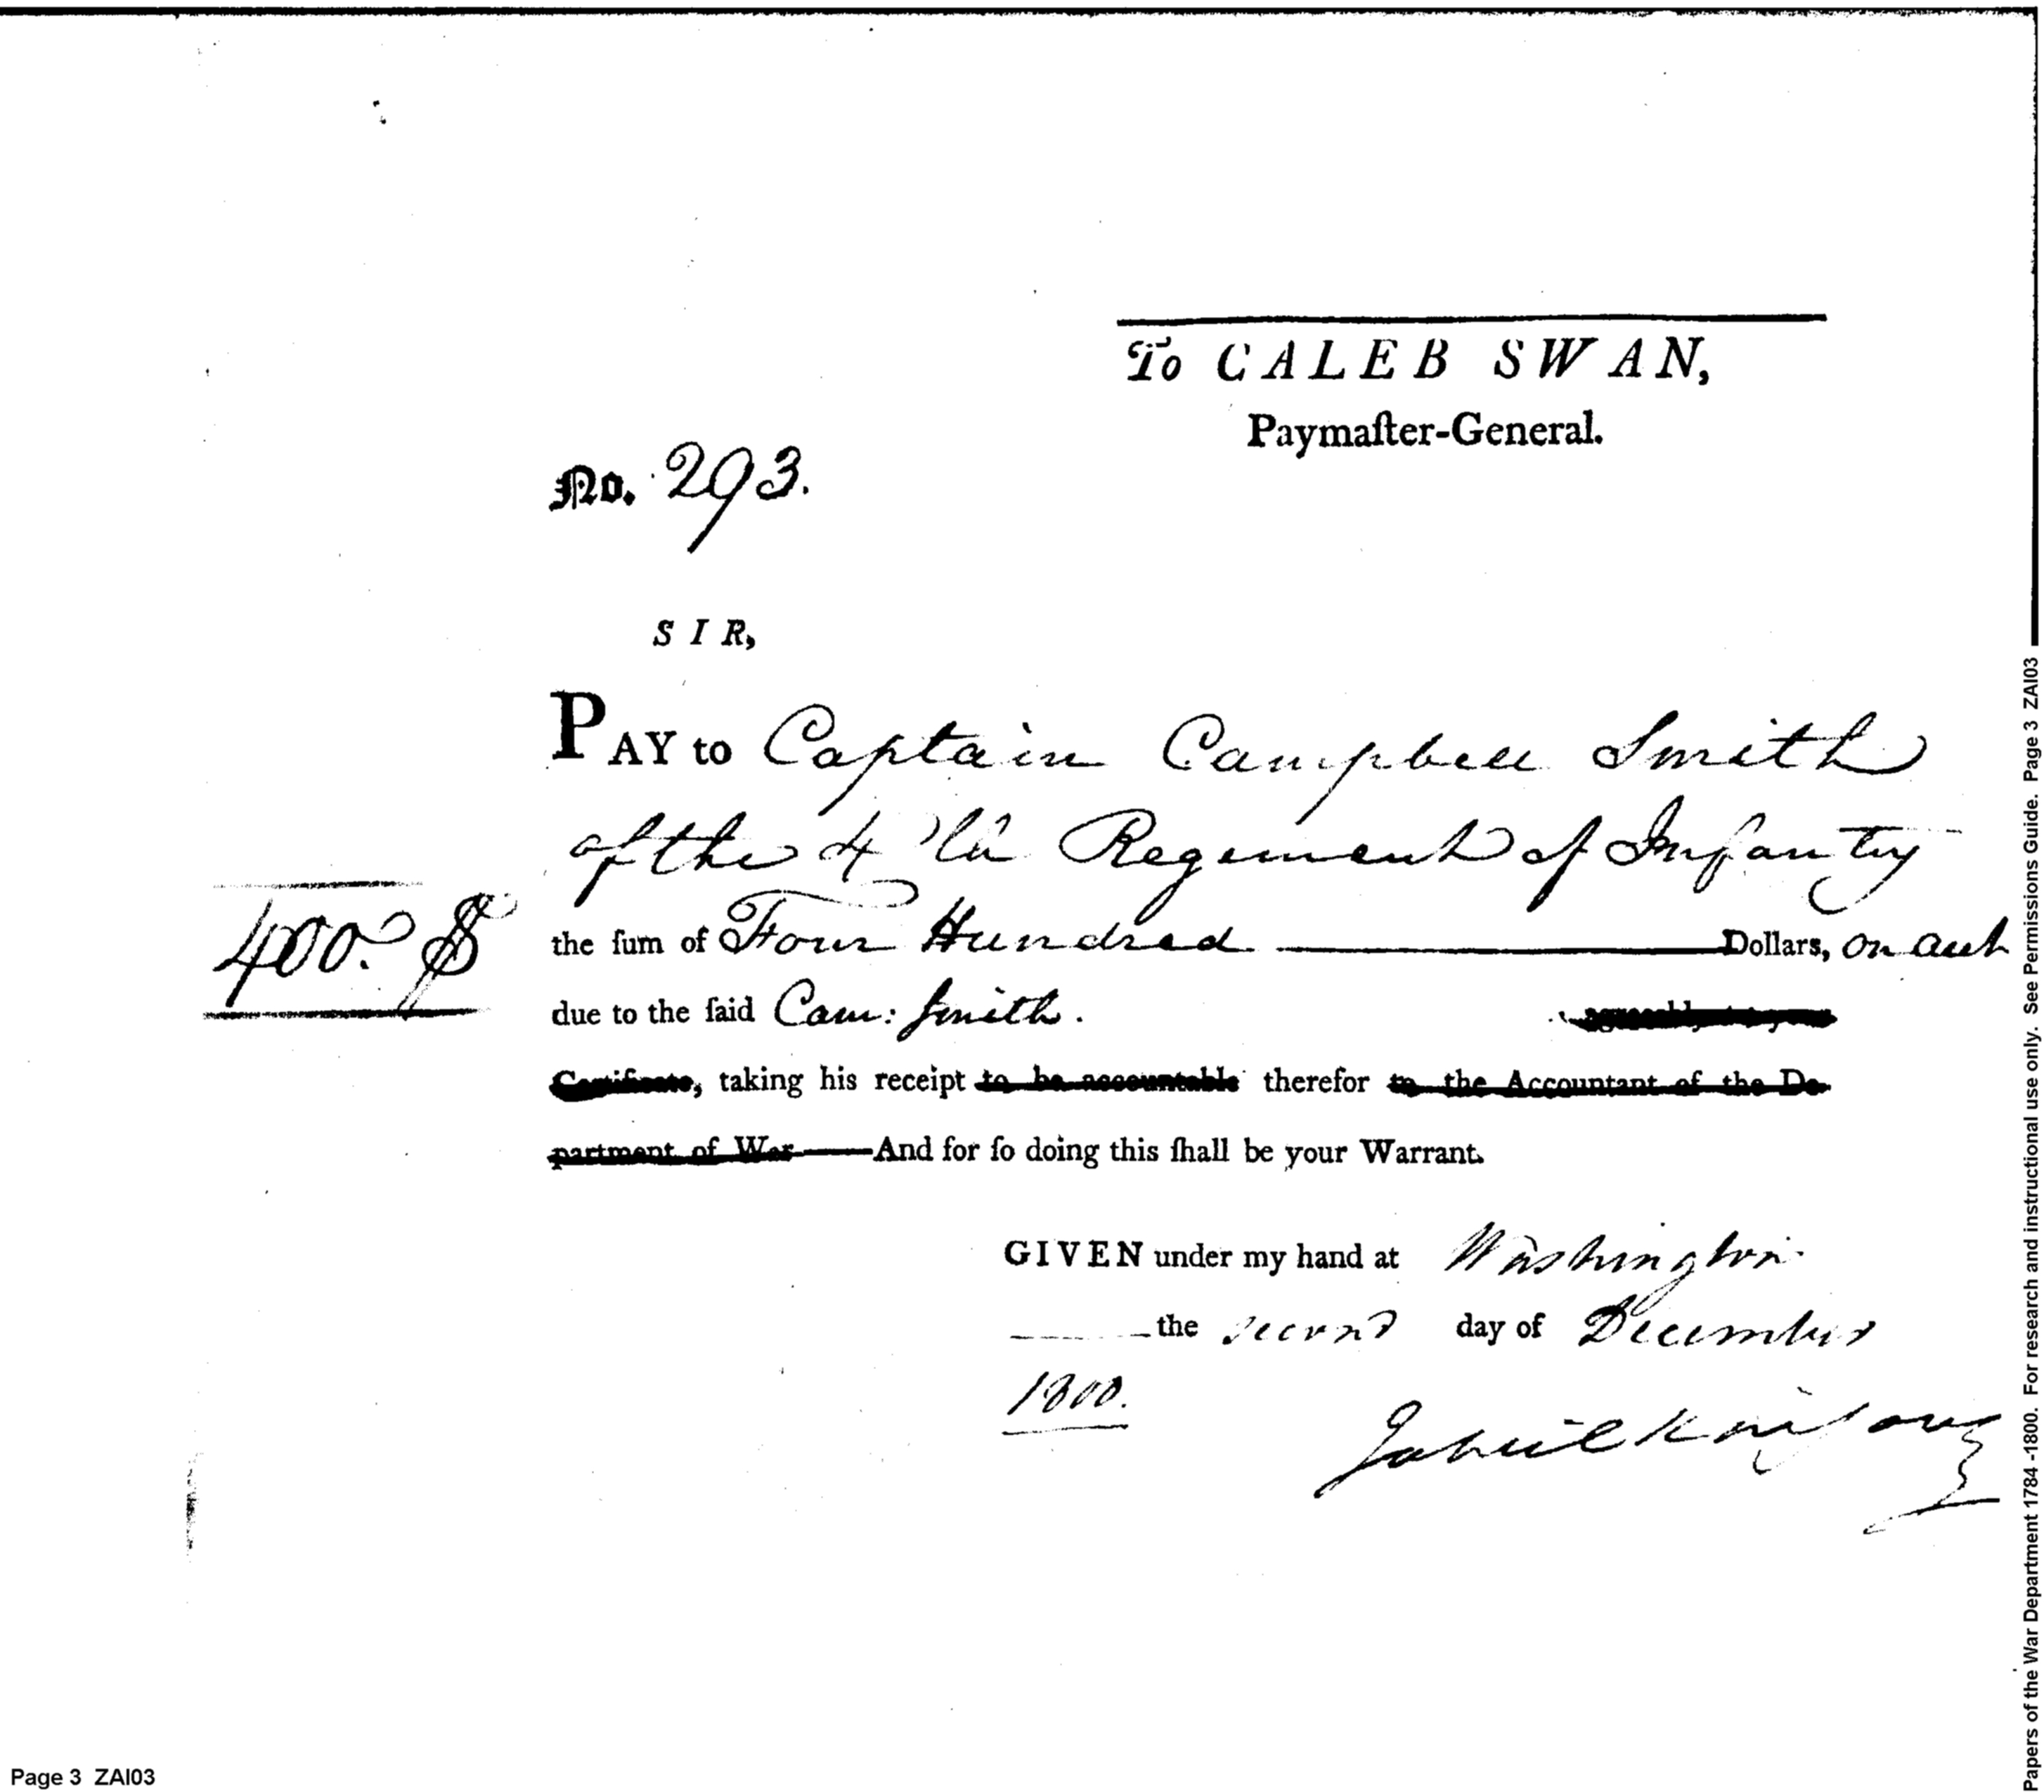 To CALEB SWAN,
Paymaſter-General.
No. 293.
SIR,
PAY to Captain Campbell Smith
of the 4 th Regement of Infantry
400. $
the ſum of Four Hundred Dollars, on acct
due to the ſaid Cam: Smith.
agreeably to your
Certificate, taking his receipt to be accountable therefor to the Accountant of the De-
partment of War——And for ſo doing this ſhall be your Warrant.
GIVEN under my hand at Washington
the second day of December
1800.
Ja Wilkinson
Page 3 ZAI03
Papers of the War Department 1784 -1800. For research and instructional use only. See Permissions Guide. Page 3 ZAI03